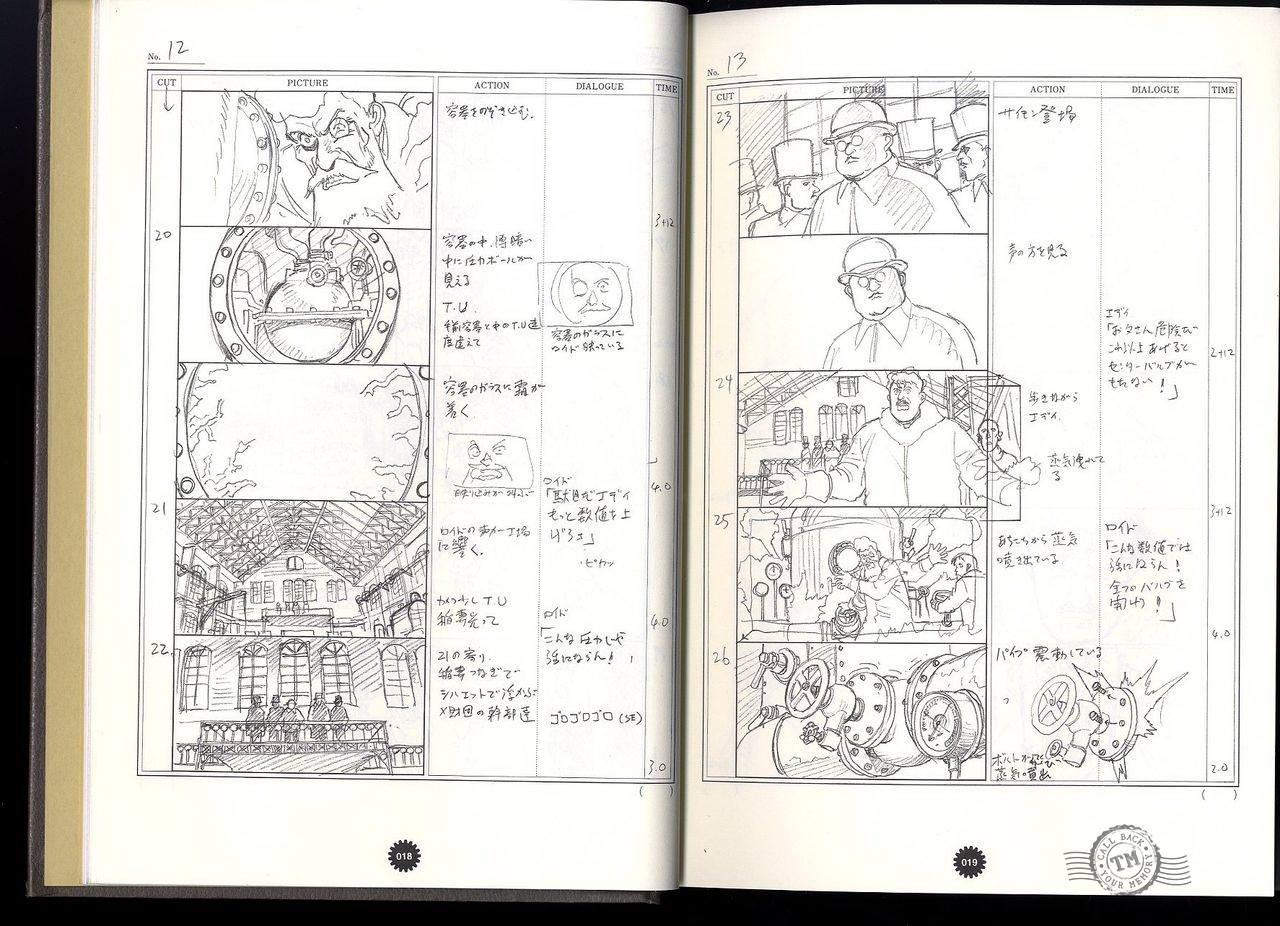 No. 12
CUT
PICTURE
ACTION
DIALOGUE
TIME
容器をのぞき込む。
3+12
20
容器の中、薄暗い
中に圧力ボールが
見える
T.U.
容器のガラスに
ロイド映っている
容器のガラスに霜が
着く
ロイド
「駄目だエディ
もっと数値を上
げろぉ」
4.0
21
ロイドの声が工場
に響く。
・ピカッ
カメラ少しT.U
稲妻光って
4.0
22
ロイド
「こんな圧力じゃ
強にならん!
21の寄り
稲妻つなぎで
シルエットで浮かぶ
メ財団の幹部達
ゴロゴロゴロ(SE)
3.0
( )
018
No. 13
CUT
PICTURE
ACTION
DIALOGUE
TIME
23
サイモン登場
声の方を見る
エディ
「お父さん危険だ
これ以上あげると
センターバルブが
もたない!」
2+12
24
歩きながら
エディ
蒸気洩れて
る
3+12
25
あちこちから蒸気
噴き出ている
ロイド
「こんな数値では
強にならん!
全てのバルブを
開け!」
4.0
26
パイプ震動している
ボルトが飛び
蒸気噴出
2.0
( )
019
CALL BACK
TM
YOUR MEMORY